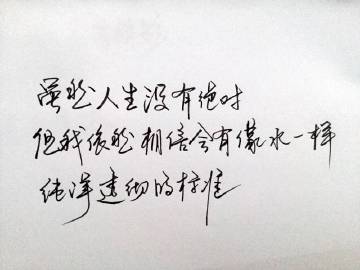 虽然人生没有绝对
但我依然相信会有像水一样
纯洁透彻的标准